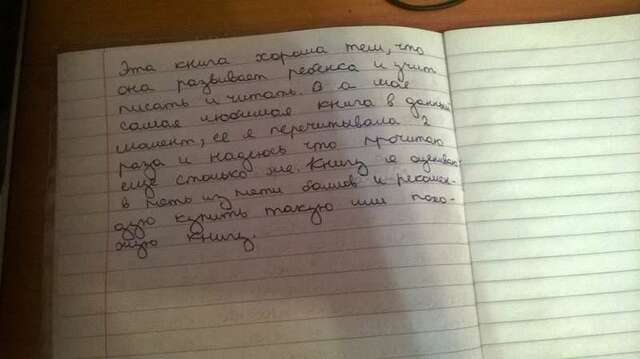 Эта книга хороша тем, что
она развывает ребёнка и учит
писать и читать. В а моя
самая любимая книга в данный
момент, её я перечитывала 2
раза и надеюсь что прочитаю
ещё столько же. Книгу я оцениваю
в пять из пяти баллов и рекомен-
дую купить такую или похо-
жую книгу.